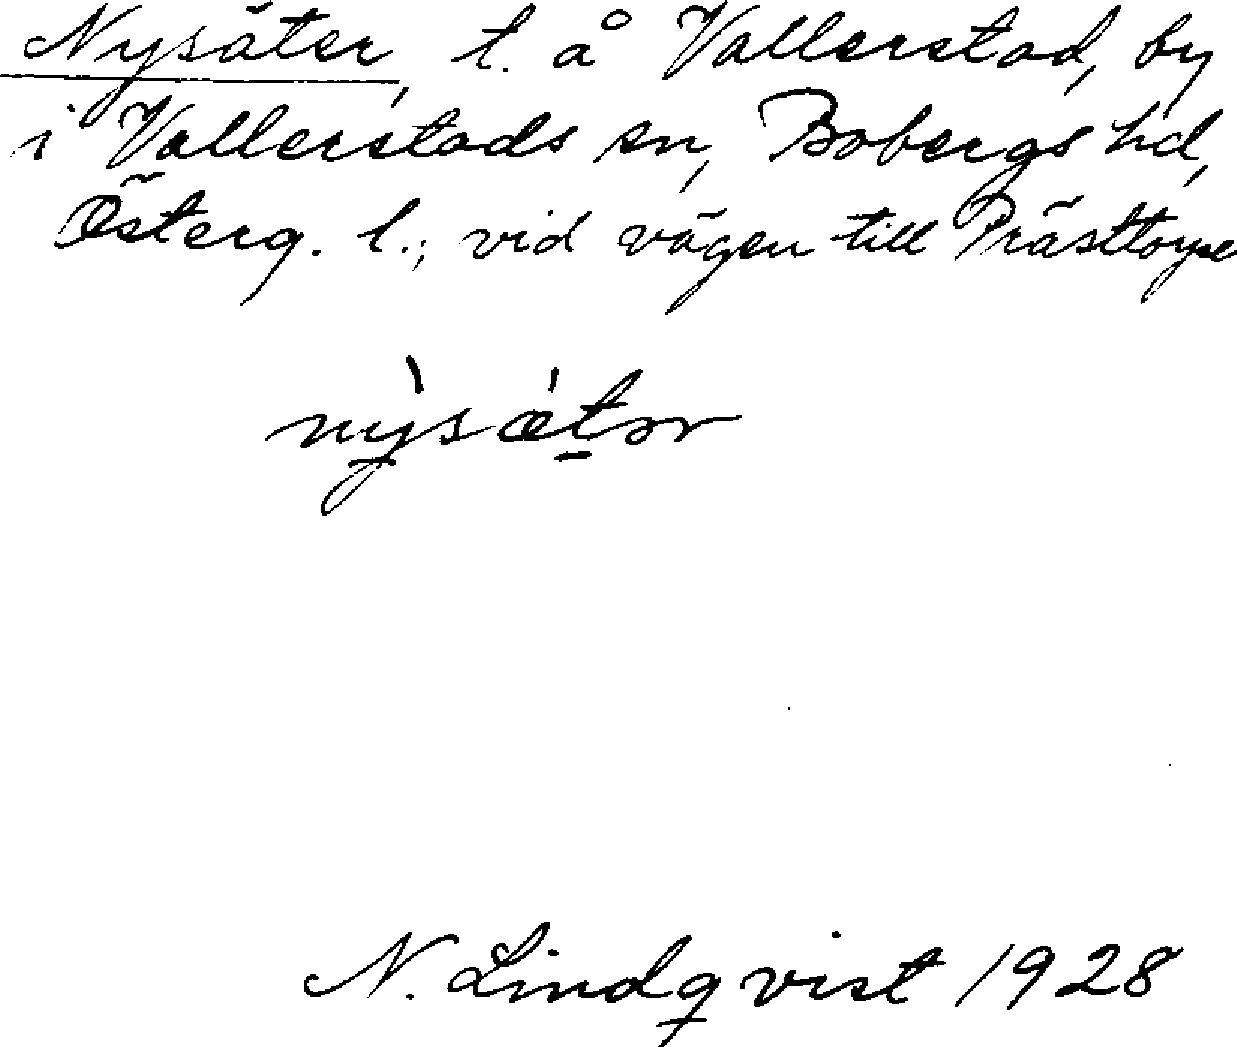 Nysäter, t. å Vallerstad, by
i Vallerstads sn, Bobergs hd,
Österg. l.; vid vägen till Prästtorpe
nỳsǽtər
N. Lindqvist 1928